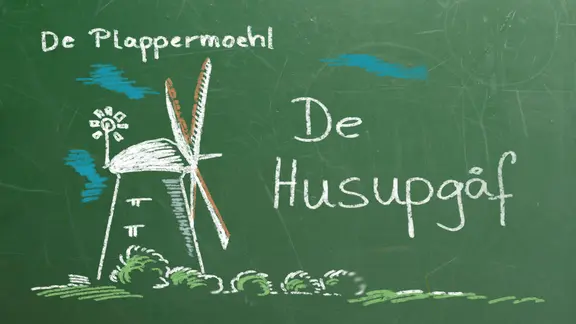 De Plappermoehl
De
Husupgåf